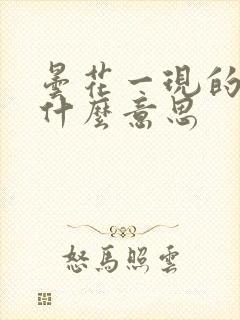 曇花一現的
什麼意思
怒馬照雲